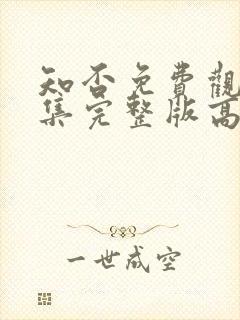 知否免費觀
集完整版高
一世成空